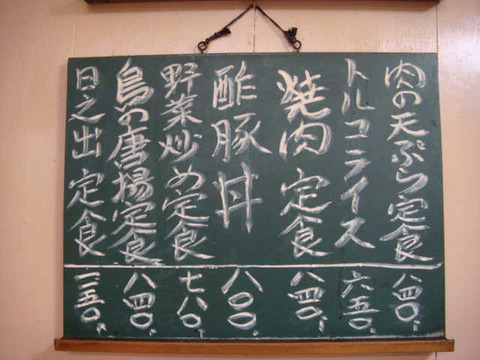 肉の天ぷら定食
八四〇、
トルコライス
六五〇、
焼肉定食
八四〇、
酢豚丼
八〇〇、
野菜炒め定食
七八〇、
鳥の唐揚定食
八四〇、
日之出定食